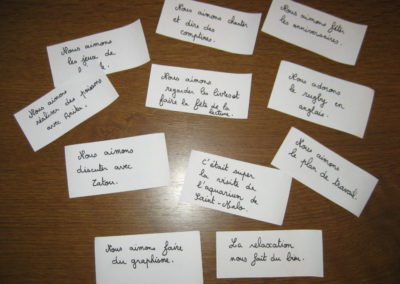 Nous aimons chanter
et dire des
comptines.
Nous aimons fêter
les anniversaires.
Nous aimons
les jeux de
Nous aimons
réaliser des poissons
avec Anita.
Nous aimons
regarder les livres et
faire la fête de la
lecture.
Nous adorons
le rugby en
anglais.
Nous aimons
discuter avec
Tatou.
c'était super
la visite de
l'aquarium de
Saint-Malo.
Nous aimons
le plan de travail.
Nous aimons faire
du graphisme.
La relaxation
nous fait du bien.